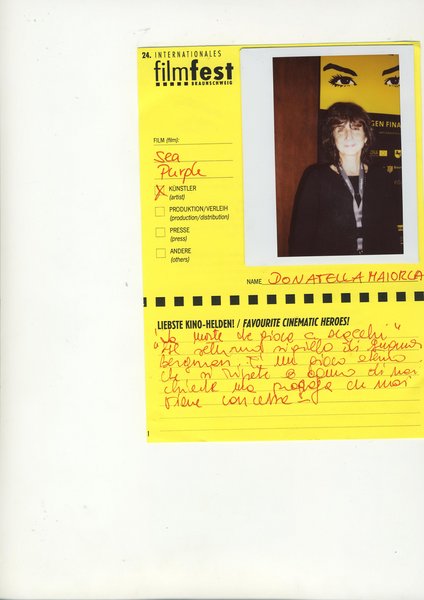 24. INTERNATIONALES
filmfest
BRAUNSCHWEIG
FILM (film):
Sea
Purple
X KÜNSTLER
(artist)
PRODUKTION/VERLEIH
(production/distribution)
PRESSE
(press)
ANDERE
(others)
GEN FINA
NAME DONATELLA MAIORCA
LIEBSTE KINO-HELDEN! / FAVOURITE CINEMATIC HEROES!
"La morte che gioca a scacchi"
"Il settimo sigillo di Ingmar
Bergman. È un gioco eterno
che si ripete e ognuno di noi
chiede una proroga che mai
viene concessa